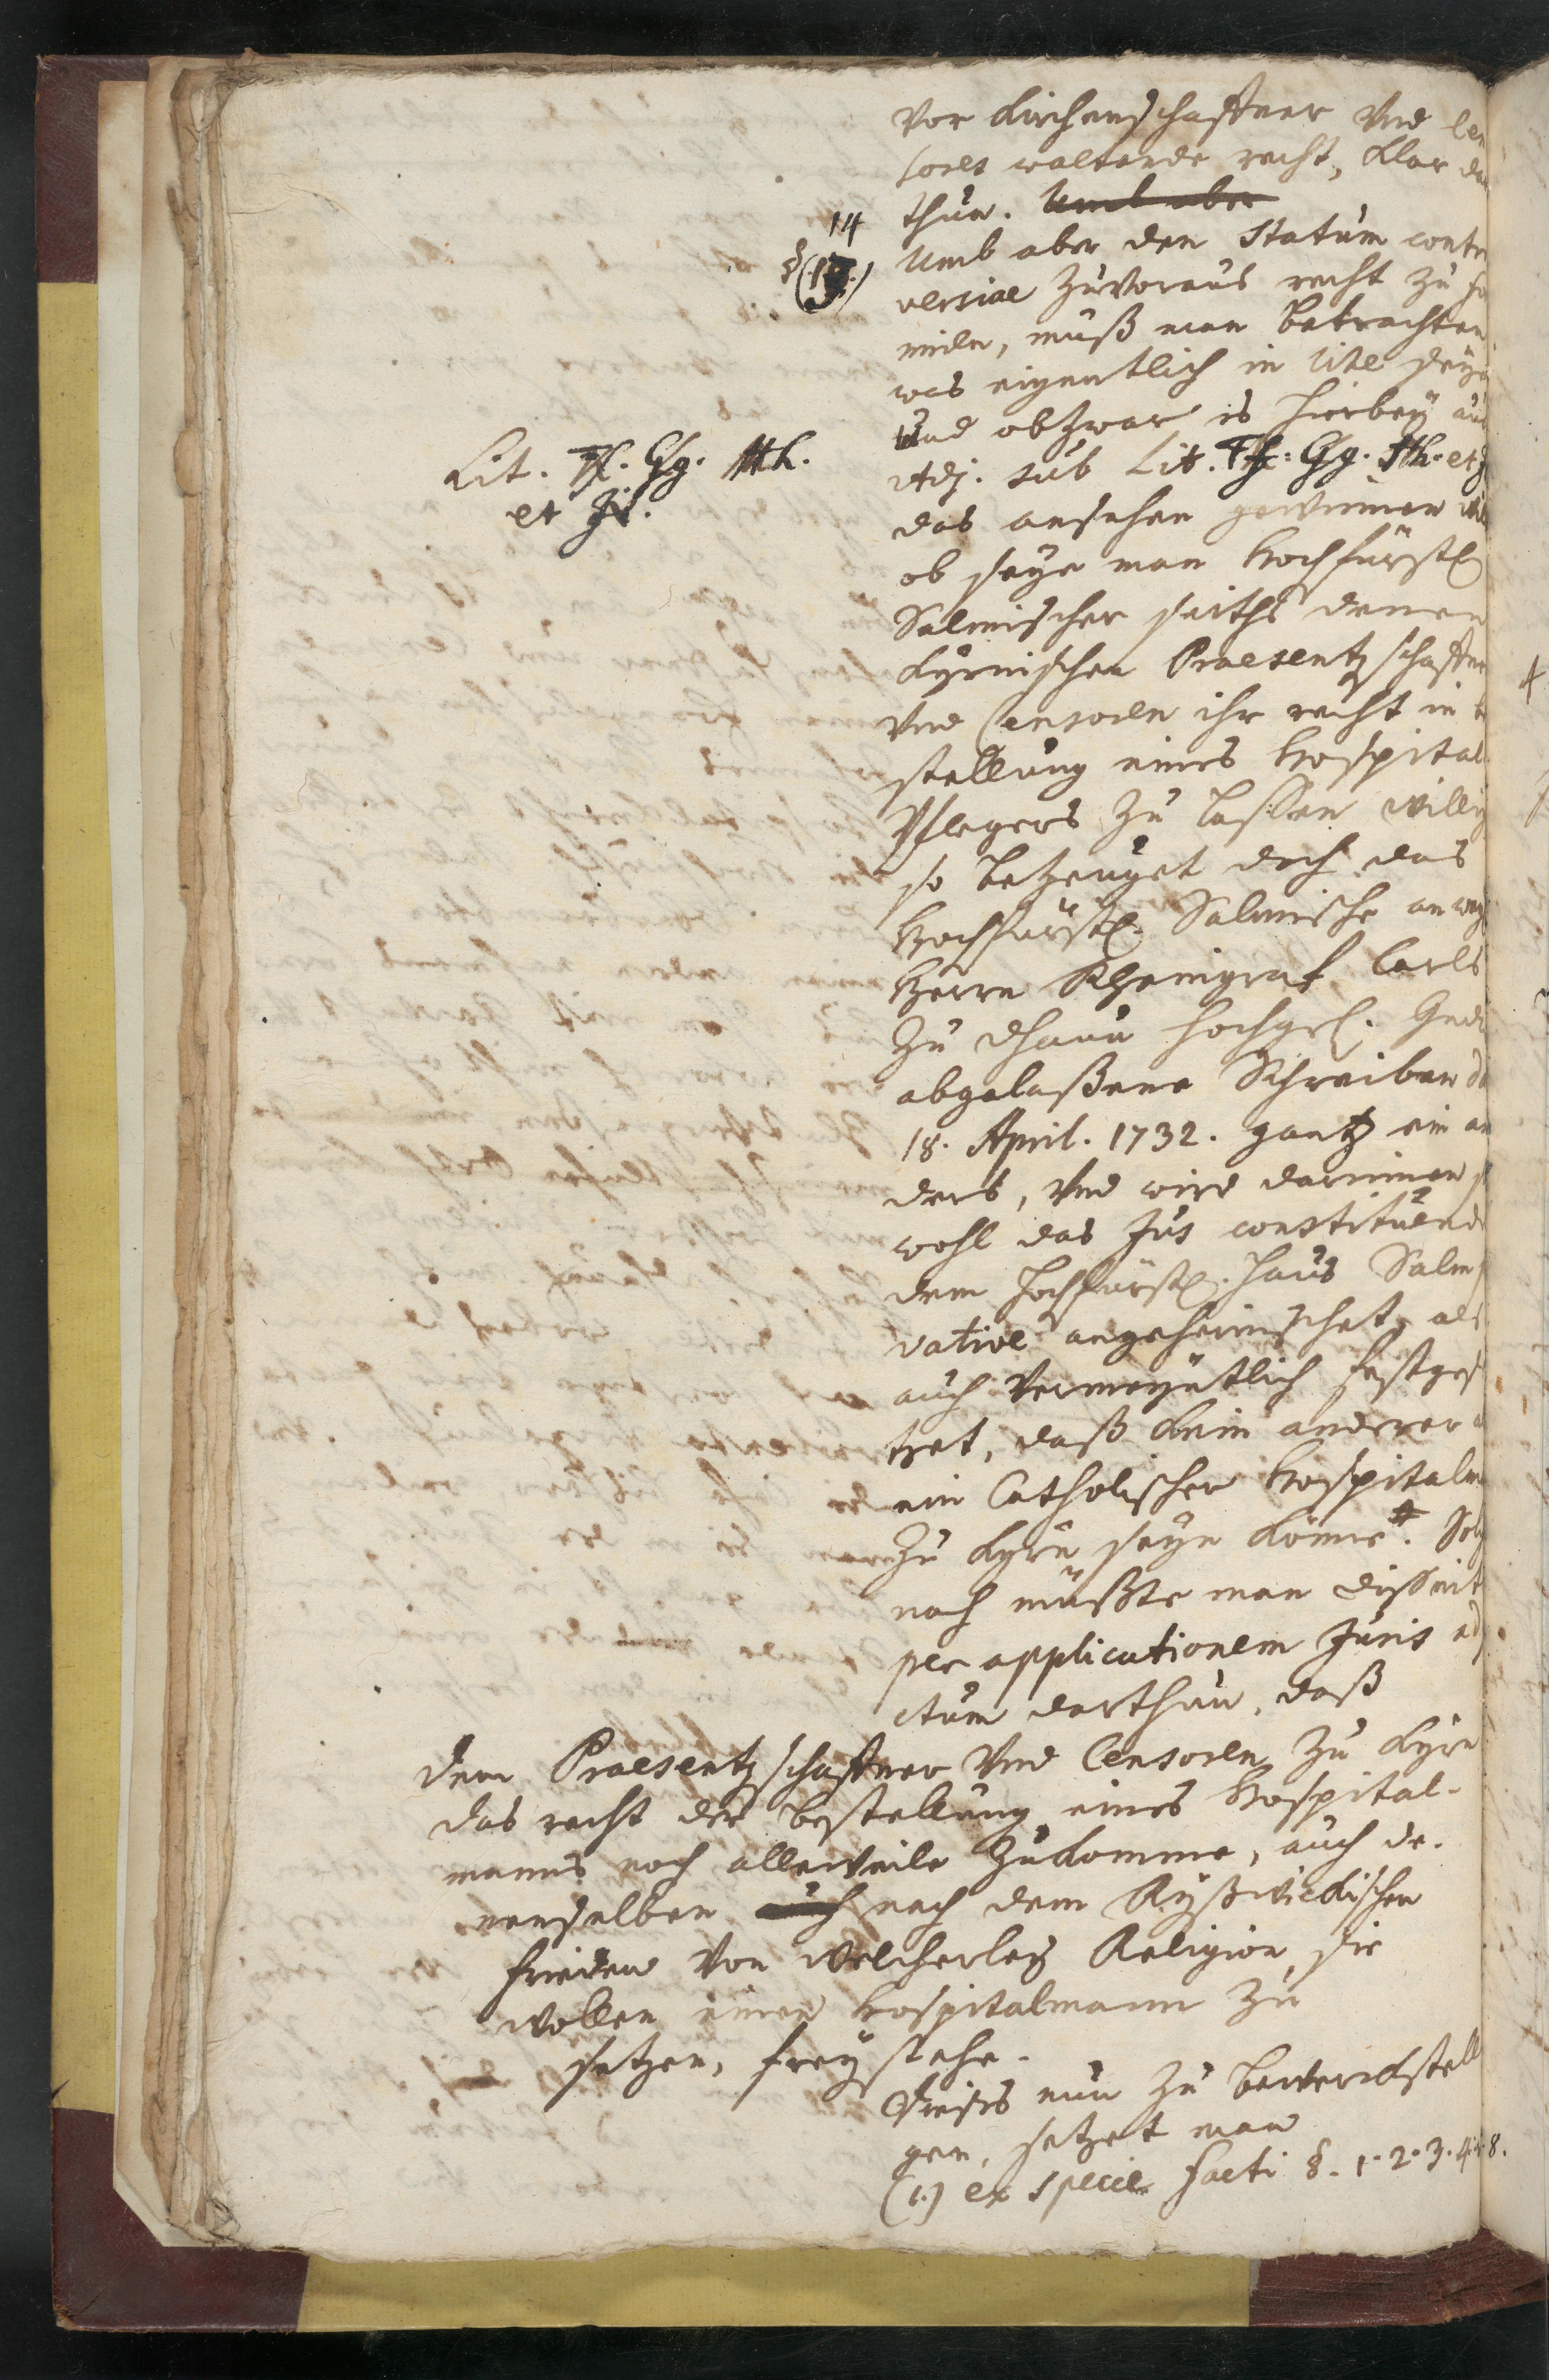 Vor Kirchenschaffner Vnd Cen
sores waltende recht, Klar da
thun. Umb aber
14
§ (13.)
Umb aber den Statum contro
versiae zuvoraus recht zu fo
miren, muß man betrachten
was eigentlich in lite seye
Und obzwar es hierbey aus
Adj. sub Lit. Ff. Gg. Hh. et J
Lit. Ff. Gg. Hh.
et Ji.
das ansehen gewinnen will
ob seye man Hochfürstl
Salmischer seiths denen
Kyrnischen Praesentzschaffner
Vnd Censoren ihr recht in be
stellung eines Hospital
Pflegers zu laßen willig
so bezeuget doch das
Hochfürstl. Salmische an weyl
Herrn Rheingraf Carls
zu Dhaun Hochgrl. Gnd
abgelaßene Schreiben dd
18. April. 1732. gantz ein an
ders, Vnd wird darinnen so
wohl das Jus constituendi
dem Hochfürstl. Haus Salm
vative angeheimschet, als
auch Vermeyntlich festges
tzet, daß kein anderer a
ein Catholischer Hospitalm
zu Kyrn seyn könne. Sol
nach müßte man disseit
per applicationem Juris ad
ctum darthun, daß
dem Praesentzschaffner Vnd Censoren zu Kyrn
das recht der bestellung eines Hospital-
manns noch alleweile zukomme, auch de-
nenselben auch nach dem Ryßwickischen
Frieden Von welcherley Religion sie
wollen einen Hospitalmann zu
setzen, frey stehe.
Dieses nun zu bewerckstell
gen, setzet man
(1.) ex specie facti §. 1. 2. 3. 4. 8.